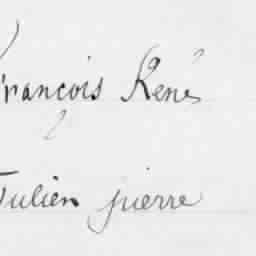 François René
Julien pierre